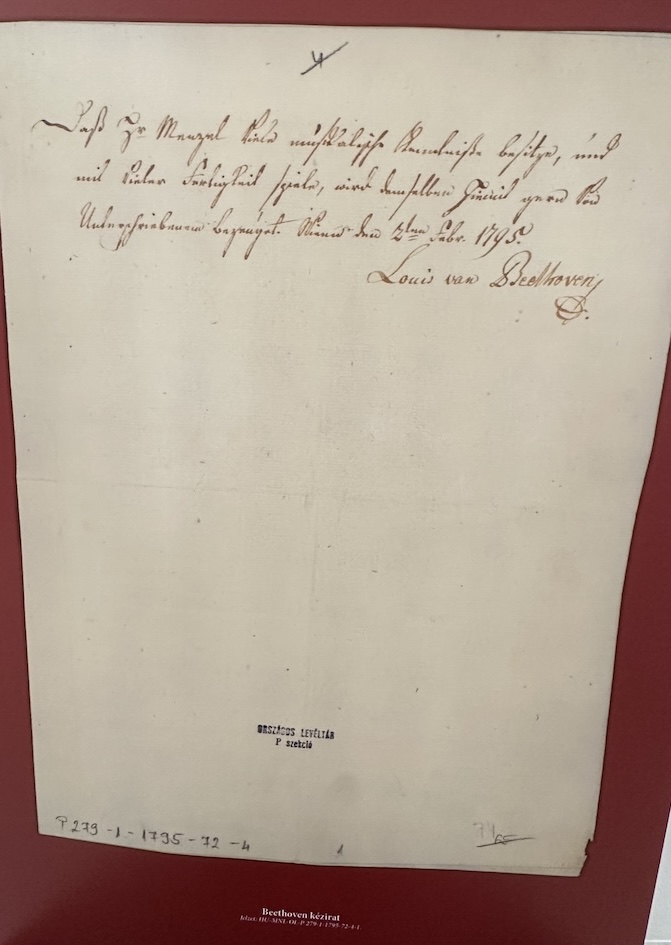 4
Daß Hr Menzel viele musikalische Kenntniße besitze, und
mit vieler Fertigkeit spiele, wird demselben hiemit gern von
Unterschriebenem bezeuget. Wienn den 2ten Febr. 1795.
Louis van Beethoven
ORSZÁGOS LEVÉLTÁR
P szekció
P 279 - 1 - 1795 - 72 - 4
1
Beethoven kézirat
Jelzet: HU-MNL-OL-P 279-1-1795-72-4-1.